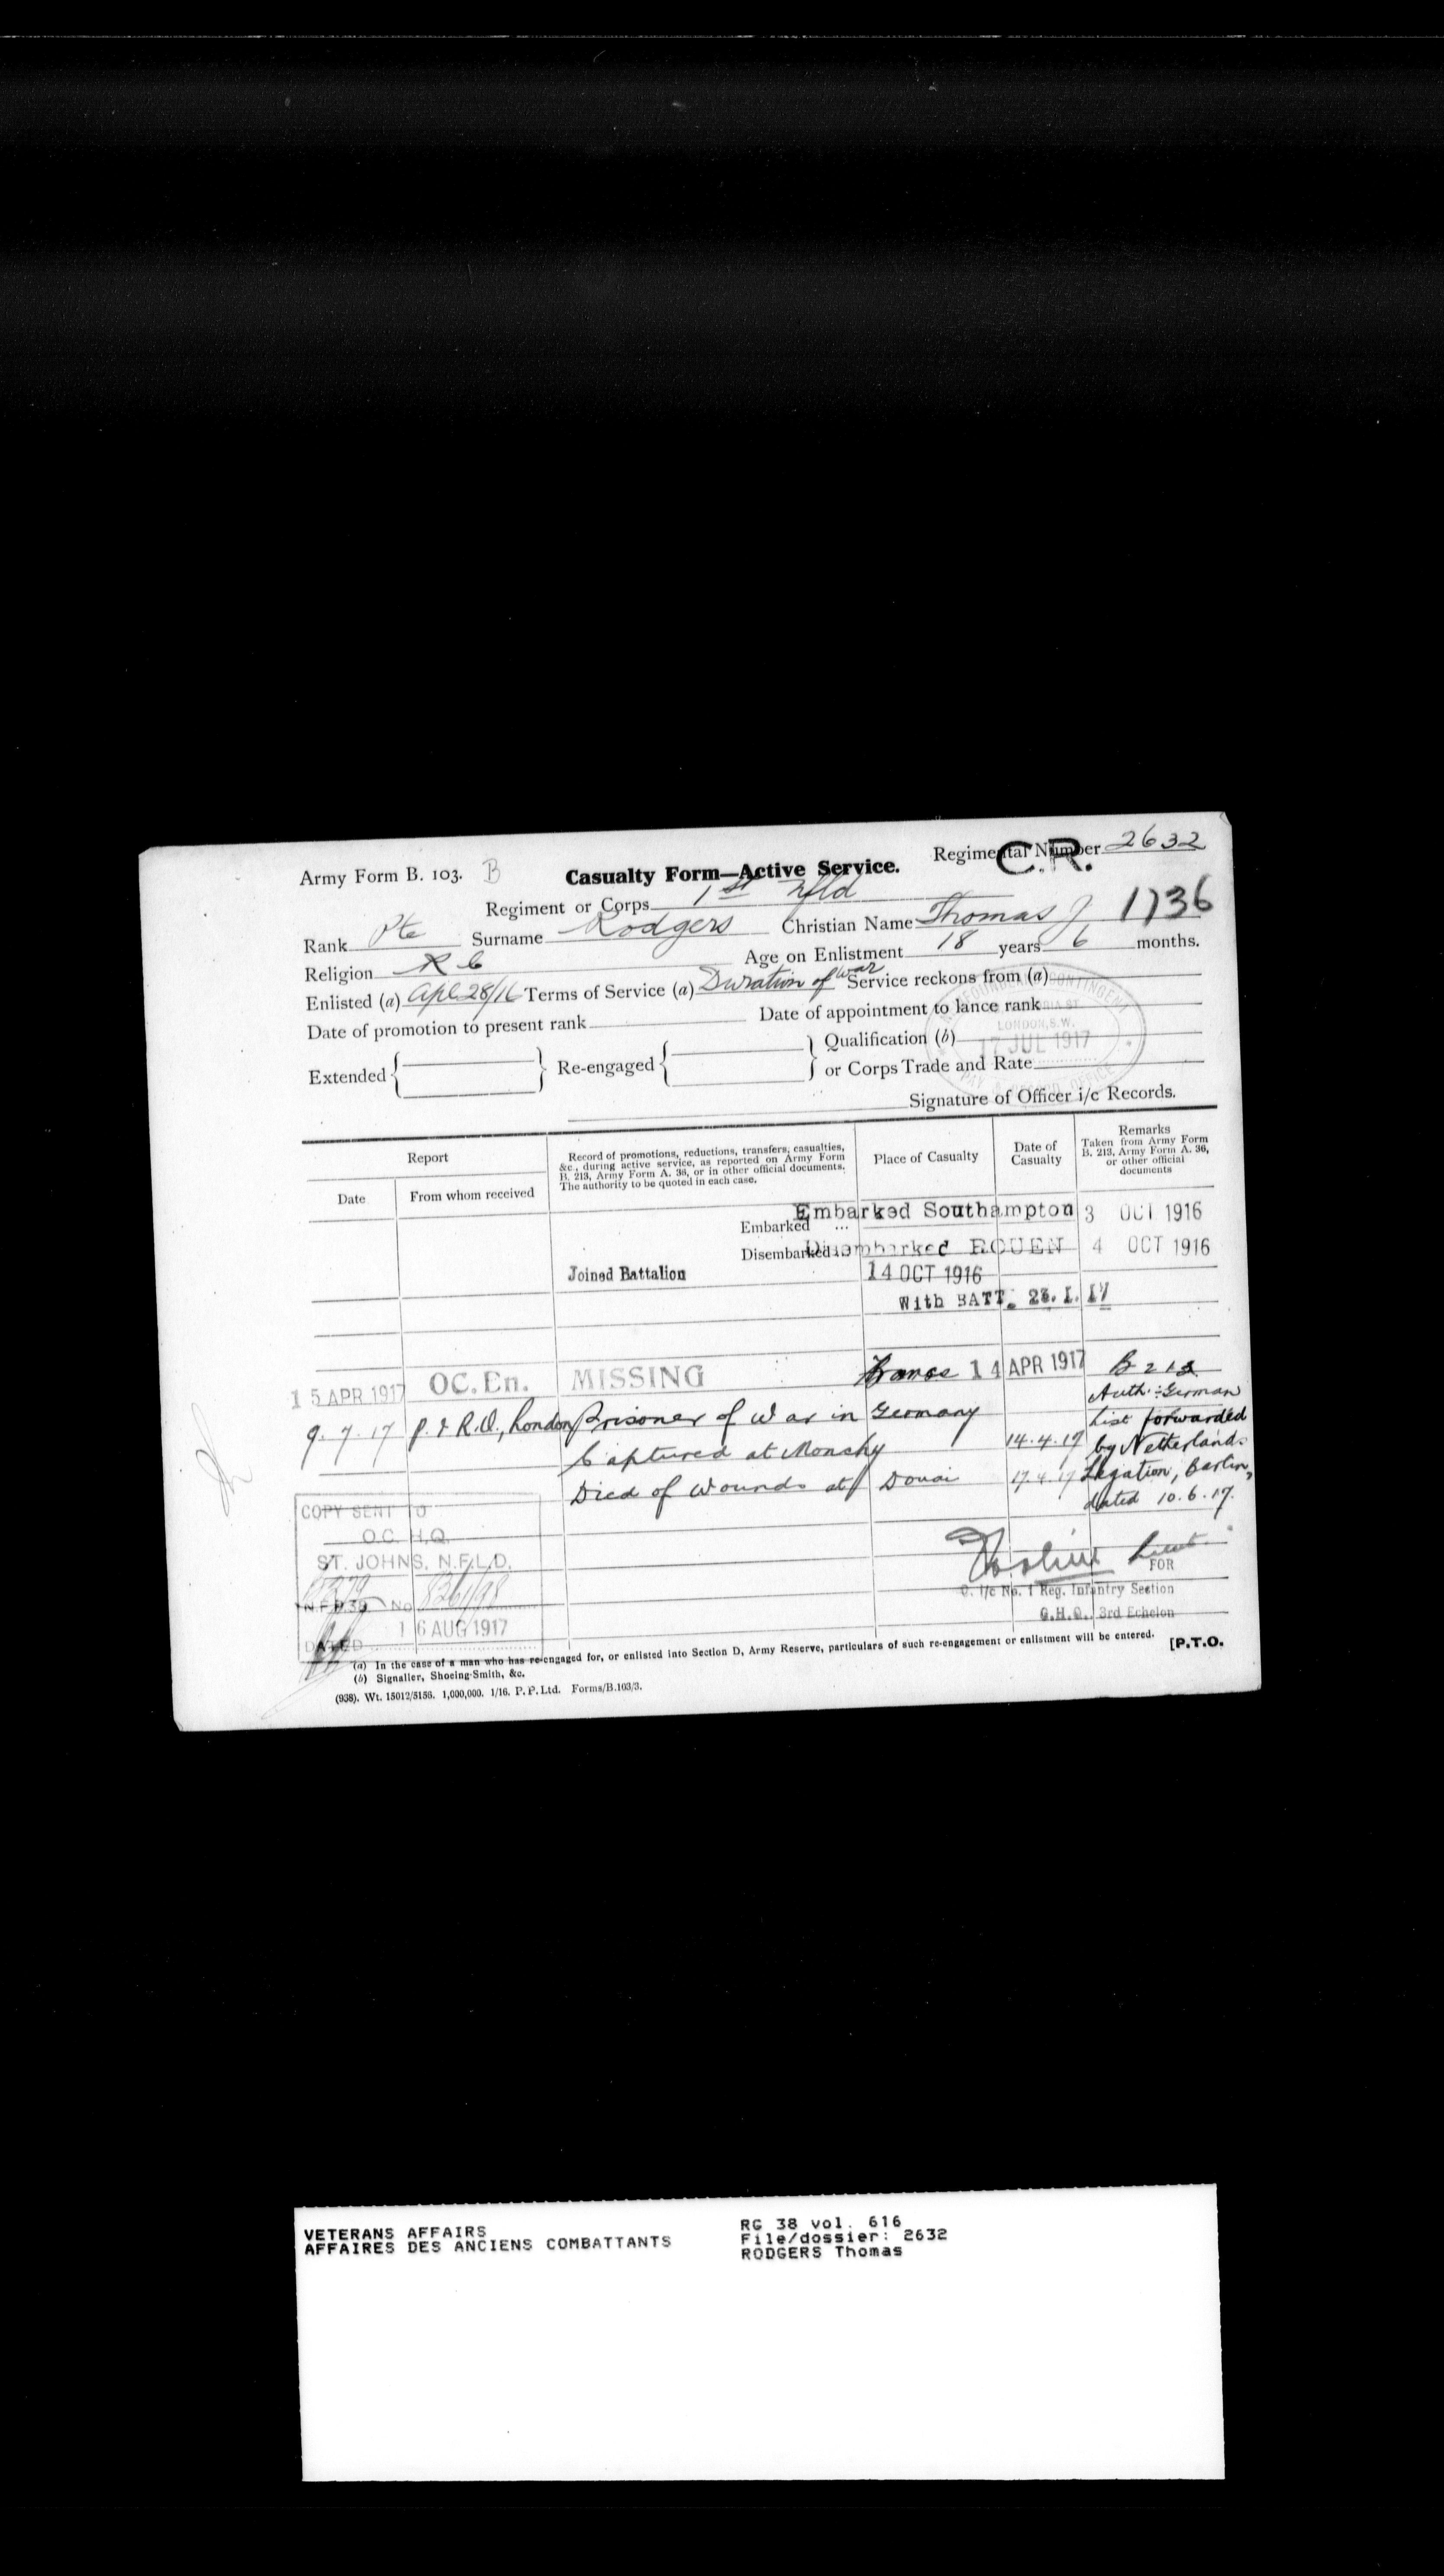 Regimental Number 2632
C.R.
Army Form B. 103. B
Casualty Form—Active Service.
Regiment or Corps 1st Nfld
1736
Rank Pte Surname Rodgers Christian Name Thomas J
Religion R C Age on Enlistment 18 years 6 months.
Enlisted (a) Apl 28/16 Terms of Service (a) Duration of war Service reckons from (a)
Date of promotion to present rank Date of appointment to lance rank
Extended Re-engaged Qualification (b)
or Corps Trade and Rate
NEWFOUNDLAND CONTINGENT
LONDON, S.W.
17 JUL 1917
PAY & RECORD OFFICE
Signature of Officer i/c Records.
Report
Date
From whom received
Record of promotions, reductions, transfers, casualties,
&c., during active service, as reported on Army Form
B. 213, Army Form A. 36, or in other official documents.
The authority to be quoted in each case.
Place of Casualty
Date of
Casualty
Remarks
Taken from Army Form
B. 213, Army Form A. 36,
or other official
documents
Embarked ... Embarked Southampton 3 OCT 1916
Disembarked Disembarked ROUEN 4 OCT 1916
Joined Battalion 14 OCT 1916
With BATT. 23. 1. 17
15 APR 1917 OC. En. MISSING France 14 APR 1917 B 213
9.7.17 P. & R.O., London Prisoner of War in Germany
Captured at Monchy 14.4.17
Died of Wounds at Douai 17.4.17
Auth:- German
list forwarded
by Netherlands
Legation, Berlin,
dated 10.6.17.
COPY SENT TO
O.C. H.Q.
ST. JOHNS, N.F.L.D.
N.F.P.39 No
DATED 16 AUG 1917
Lieut.
FOR
O. i/c No. 1 Reg. Infantry Section
G.H.Q. 3rd Echelon
(a) In the case of a man who has re-engaged for, or enlisted into Section D, Army Reserve, particulars of such re-engagement or enlistment will be entered.
[P.T.O.
(b) Signaller, Shoeing-Smith, &c.
(938). Wt. 15012/5156. 1,000,000. 1/16. P. P. Ltd. Forms/B.103/3.
VETERANS AFFAIRS
AFFAIRES DES ANCIENS COMBATTANTS
RG 38 vol. 616
File/dossier: 2632
RODGERS Thomas